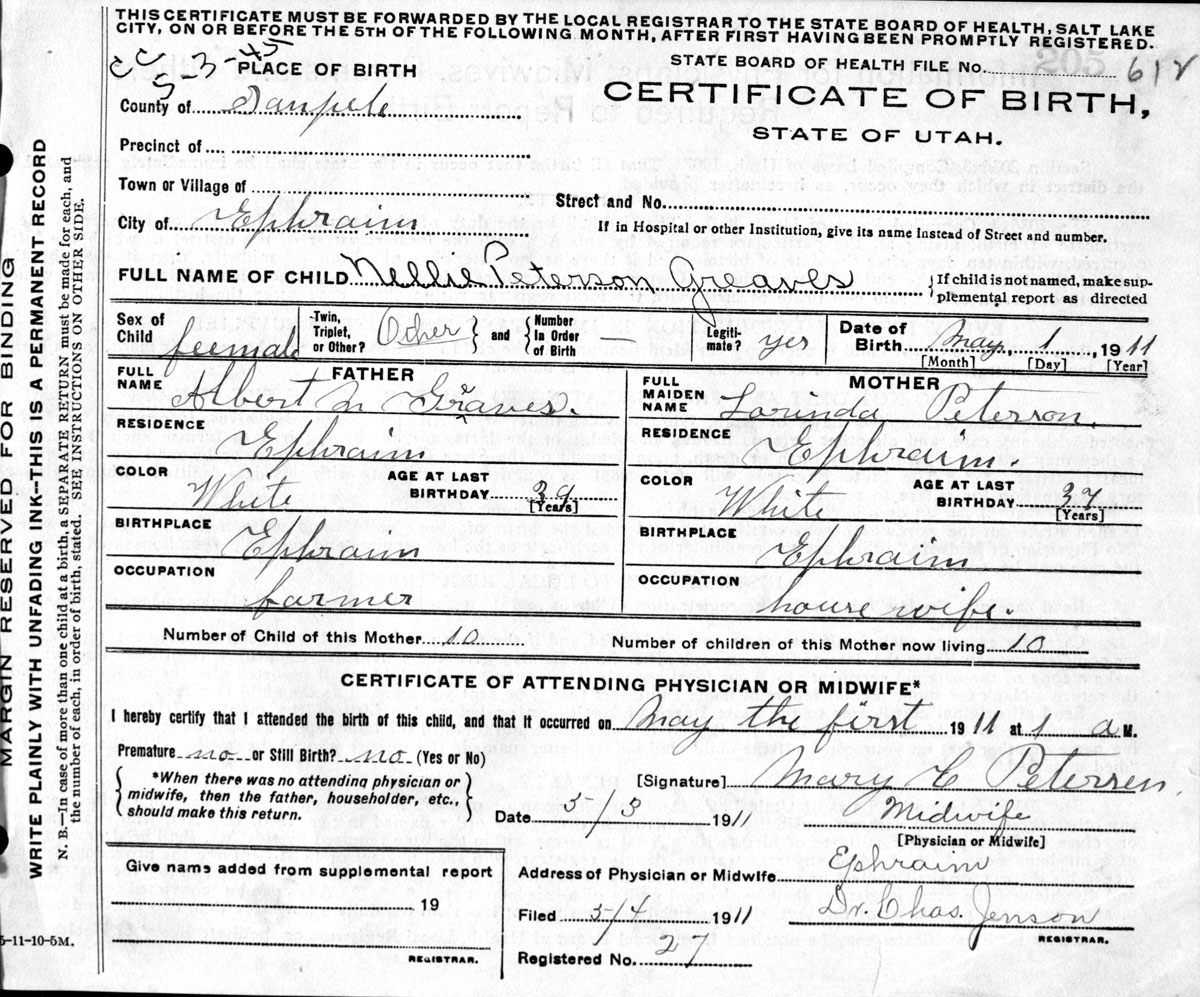 THIS CERTIFICATE MUST BE FORWARDED BY THE LOCAL REGISTRAR TO THE STATE BOARD OF HEALTH, SALT LAKE
CITY, ON OR BEFORE THE 5TH OF THE FOLLOWING MONTH, AFTER FIRST HAVING BEEN PROMPTLY REGISTERED.
STATE BOARD OF HEALTH FILE No. 612
5-3-45
PLACE OF BIRTH
CERTIFICATE OF BIRTH,
STATE OF UTAH.
County of Sanpete
Precinct of
Town or Village of
Street and No.
City of Ephraim
If in Hospital or other Institution, give its name instead of Street and number.
FULL NAME OF CHILD Nellie Peterson Greaves
If child is not named, make sup-
plemental report as directed
Sex of Child feemale
Twin, Triplet, or Other? Other
and Number In Order of Birth —
Legiti-mate? yes
Date of Birth May 1 1911
[Month] [Day] [Year]
FATHER
FULL NAME Albert N Greaves.
RESIDENCE Ephraim
COLOR White
AGE AT LAST BIRTHDAY 39 [Years]
BIRTHPLACE Ephraim
OCCUPATION farmer
MOTHER
FULL MAIDEN NAME Lorinda Peterson.
RESIDENCE Ephraim.
COLOR White
AGE AT LAST BIRTHDAY 37 [Years]
BIRTHPLACE Ephraim
OCCUPATION house wife
Number of Child of this Mother 10
Number of children of this Mother now living 10
CERTIFICATE OF ATTENDING PHYSCIAN OR MIDWIFE*
I hereby certify that I attended the birth of this child, and that it occurred on May the first 1911 at 1 a M.
Premature no or Still Birth? no (Yes or No)
*When there was no attending physician or
midwife, then the father, householder, etc.,
should make this return.
[Signature] Mary C Petersen.
Date 5/3 1911
Midwife
[Physician or Midwife]
Give names added from supplemental report
19
REGISTRAR.
Address of Physician or Midwife Ephraim
Filed 5/4 1911
Dr. Chas. Jenson
REGISTRAR.
Registered No. 27
5-11-10-5M.
MARGIN RESERVED FOR BINDING
WRITE PLAINLY WITH UNFADING INK—THIS IS A PERMANENT RECORD
N. B.—In case of more than one child at a birth, a SEPARATE RETURN must be made for each, and
the number of each, in order of birth, stated. SEE INSTRUCTIONS ON OTHER SIDE.